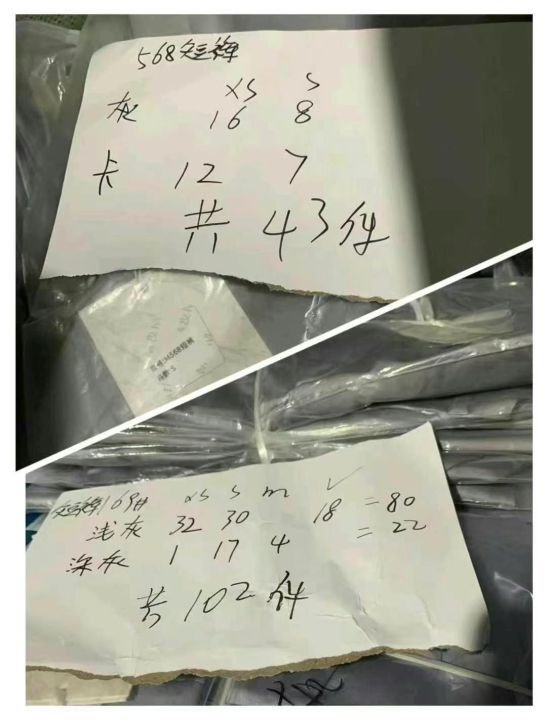 568短裤
XS S
灰 16 8
卡 12 7
共 43件
短裤169#
XS S m ✓
浅灰 32 30 18 = 80
深灰 1 17 4 = 22
共 102 件